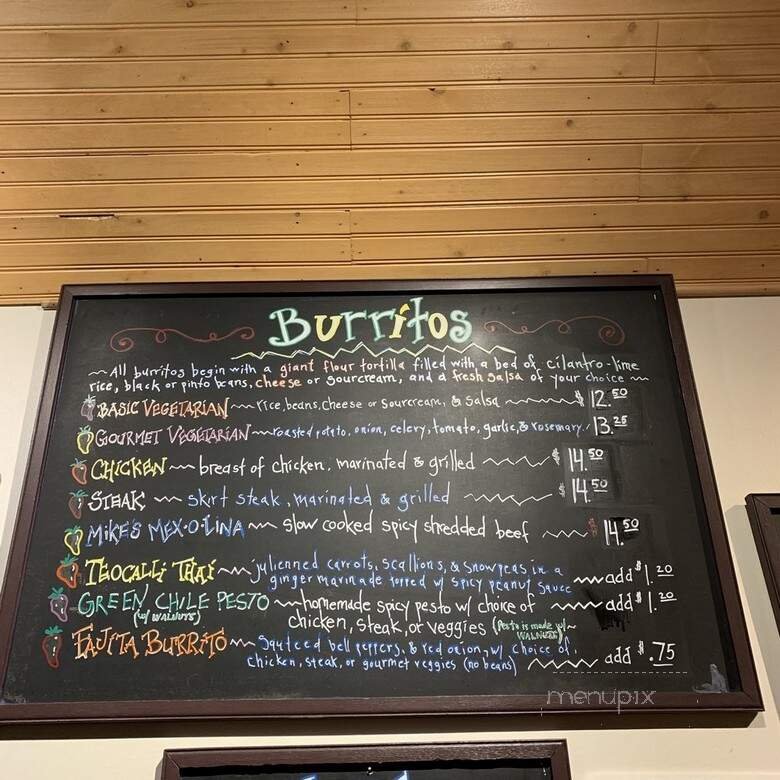 Burritos
~ All burritos begin with a giant flour tortilla filled with a bed of cilantro-lime
rice, black or pinto beans, cheese or sourcream, and a fresh salsa of your choice ~
BASIC VEGETARIAN ~ rice, beans, cheese or sourcream, & salsa ~ $12.50
GOURMET VEGETARIAN ~ roasted potato, onion, celery, tomato, garlic, & rosemary. 13.25
CHICKEN ~ breast of chicken, marinated & grilled ~ $14.50
STEAK ~ skirt steak, marinated & grilled ~ $14.50
MIKE'S MEX-O-LINA ~ slow cooked spicy shredded beef ~ $14.50
TEOCALLI THAI ~ julienned carrots, scallions, & snowpeas in a
ginger marinade topped w/ spicy peanut sauce ~ add $1.20
GREEN CHILE PESTO ~ homemade spicy pesto w/ choice of ~ add $1.20
(w/ WALNUTS) chicken, steak, or veggies (Pesto is made w/~
WALNUTS)
FAJITA BURRITO ~ sauteed bell peppers, & red onion, w/ choice of
chicken, steak, or gourmet veggies (no beans) ~ add $.75
menupix